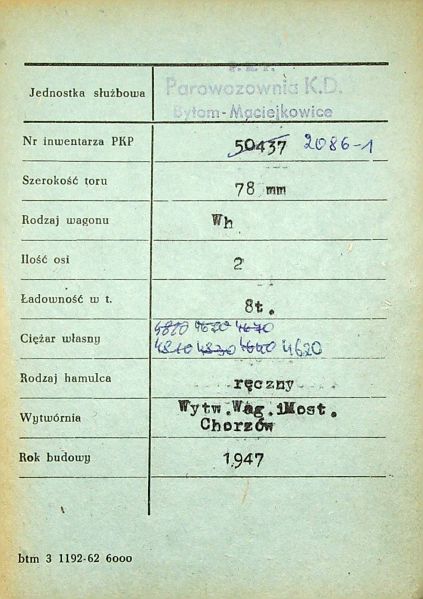 P.K.P.
Jednostka służbowa Parowozownia K.D.
Bytom-Maciejkowice
Nr inwentarza PKP 50437 2086-1
Szerokość toru 78 mm
Rodzaj wagonu Wh
Ilość osi 2
Ładowność w t. 8t.
4810 4620 4670
Ciężar własny 4810 4830 4640 4620
Rodzaj hamulca ręczny
Wytwórnia Wytw.Wag.iMost.
Chorzów
Rok budowy 1947
btm 3 1192-62 6000